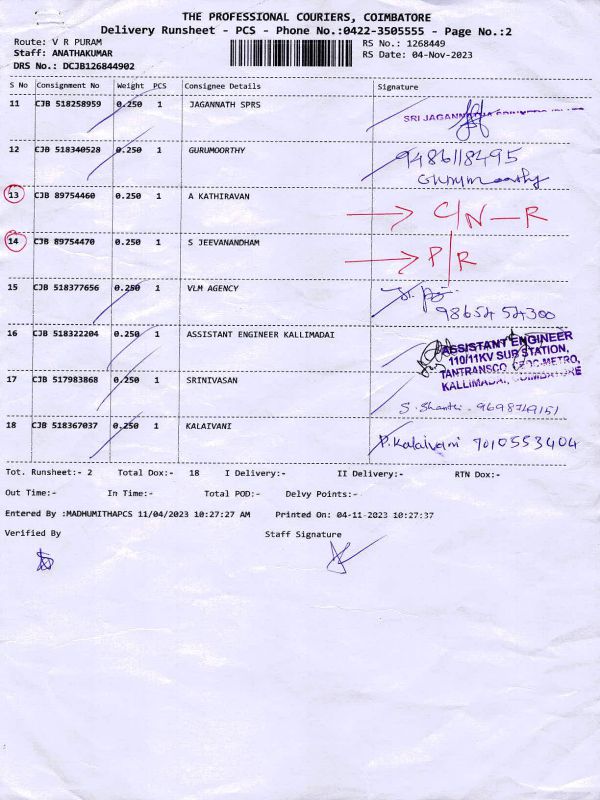 THE PROFESSIONAL COURIERS, COIMBATORE
Delivery Runsheet - PCS - Phone No.:0422-3505555 - Page No.:2
Route: V R PURAM RS No.: 1268449
Staff: ANATHAKUMAR RS Date: 04-Nov-2023
DRS No.: DCJB126844902
S No Consignment No Weight PCS Consignee Details Signature
11 CJB 518258959 0.250 1 JAGANNATH SPRS
SRI JAGANNATHA
12 CJB 518340528 0.250 1 GURUMOORTHY 9486118495
Gurumoorthy
13 CJB 89754460 0.250 1 A KATHIRAVAN C/N - R
14 CJB 89754470 0.250 1 S JEEVANANDHAM P/R
15 CJB 518377656 0.250 1 VLM AGENCY
9865454300
16 CJB 518322204 0.250 1 ASSISTANT ENGINEER KALLIMADAI ASSISTANT ENGINEER
110/11KV SUB STATION,
TANTRANSCO, METRO,
KALLIMADAI, COIMBATORE
17 CJB 517983868 0.250 1 SRINIVASAN
S. Shanthi - 9698749151
18 CJB 518367037 0.250 1 KALAIVANI P. Kalaivani 7010553404
Tot. Runsheet:- 2 Total Dox:- 18 I Delivery:- II Delivery:- RTN Dox:-
Out Time:- In Time:- Total POD:- Delvy Points:-
Entered By :MADHUMITHAPCS 11/04/2023 10:27:27 AM Printed On: 04-11-2023 10:27:37
Verified By Staff Signature